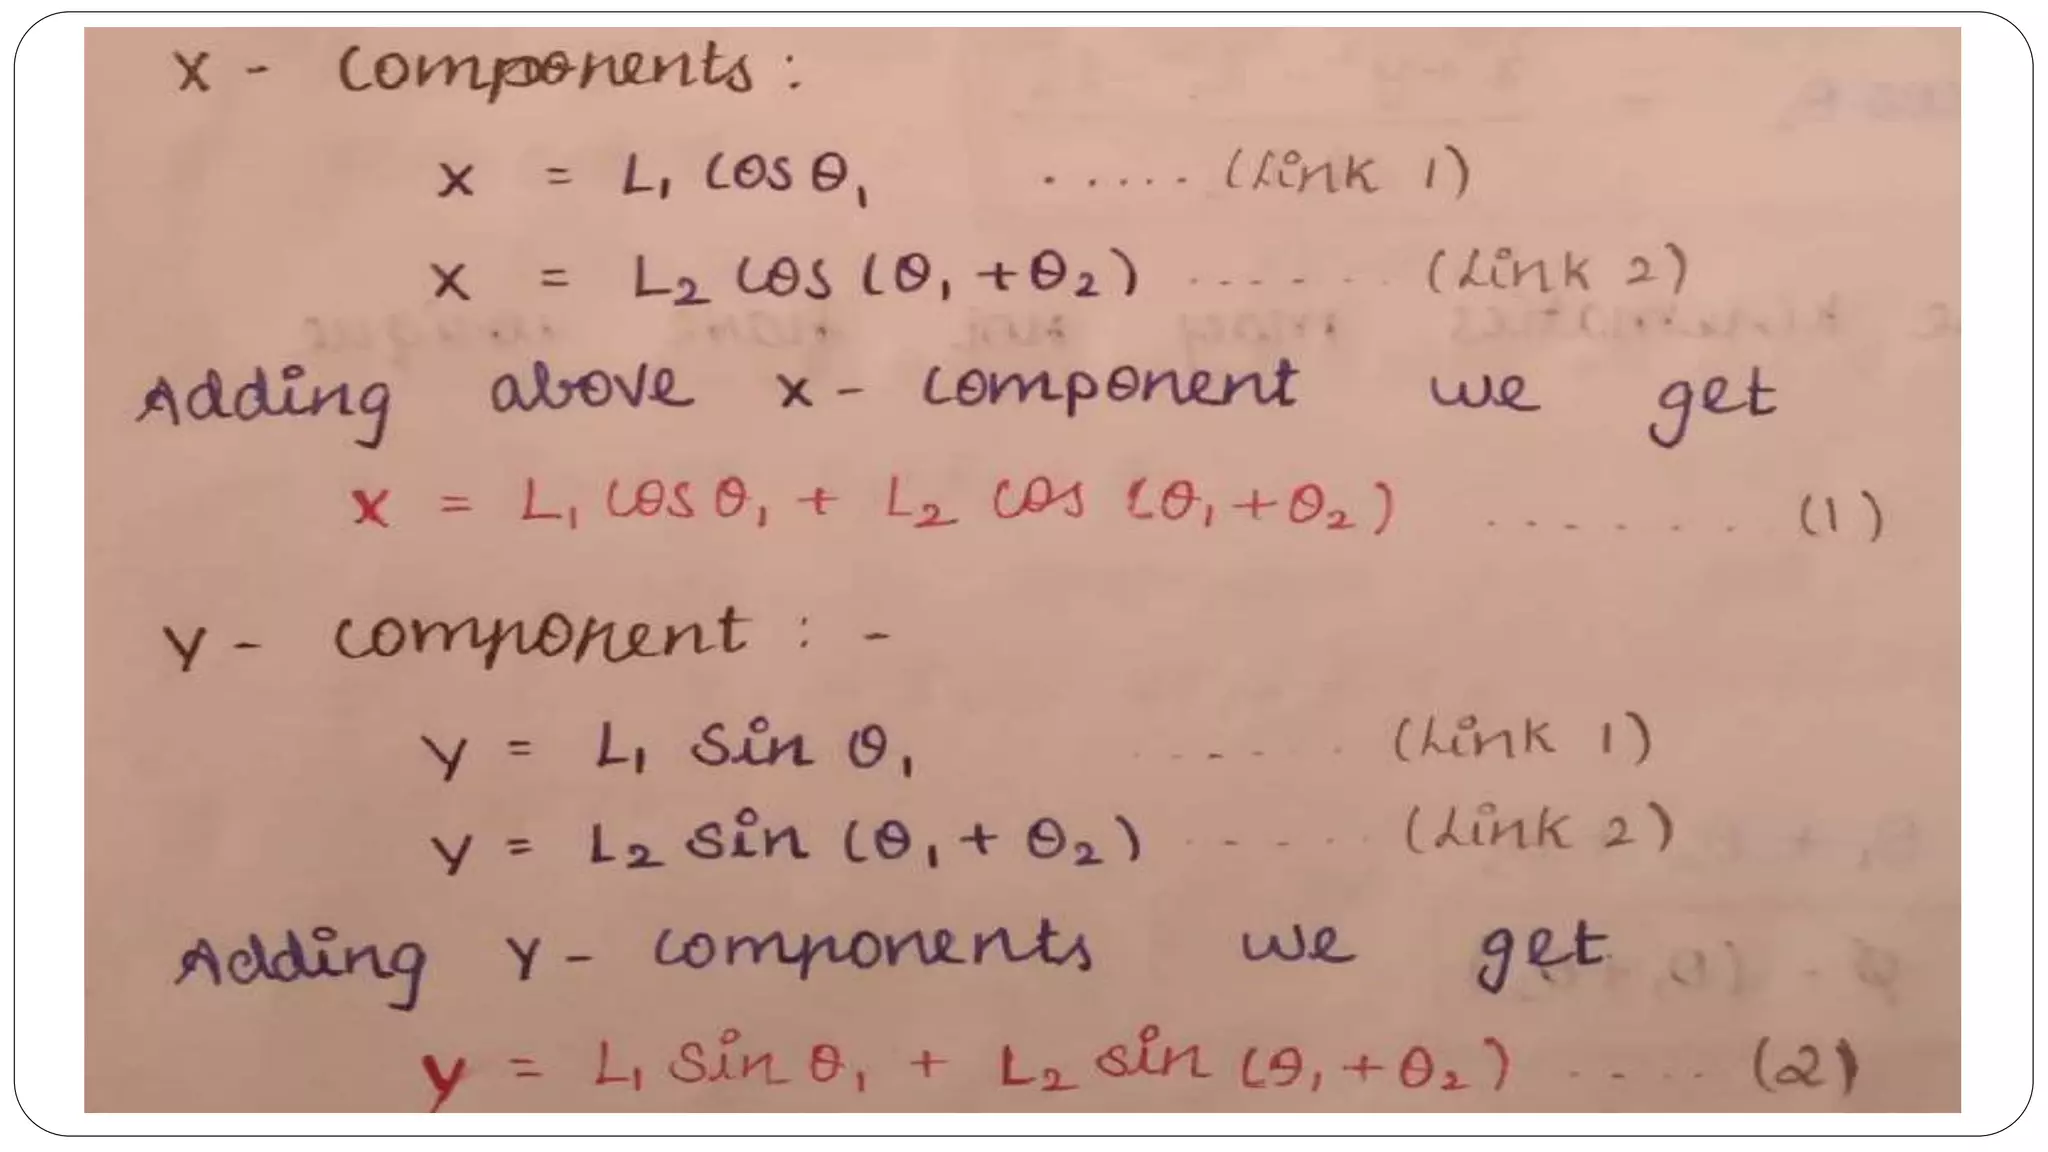 X - Components :
x = L₁ cos θ₁ ..... (Link 1)
x = L₂ cos (θ₁ + θ₂) ...... (Link 2)
Adding above x - component we get
x = L₁ cos θ₁ + L₂ cos (θ₁ + θ₂) ...... (1)
Y - component : -
y = L₁ sin θ₁ ...... (Link 1)
y = L₂ sin (θ₁ + θ₂) ..... (Link 2)
Adding Y - components we get
y = L₁ sin θ₁ + L₂ sin (θ₁ + θ₂) .... (2)